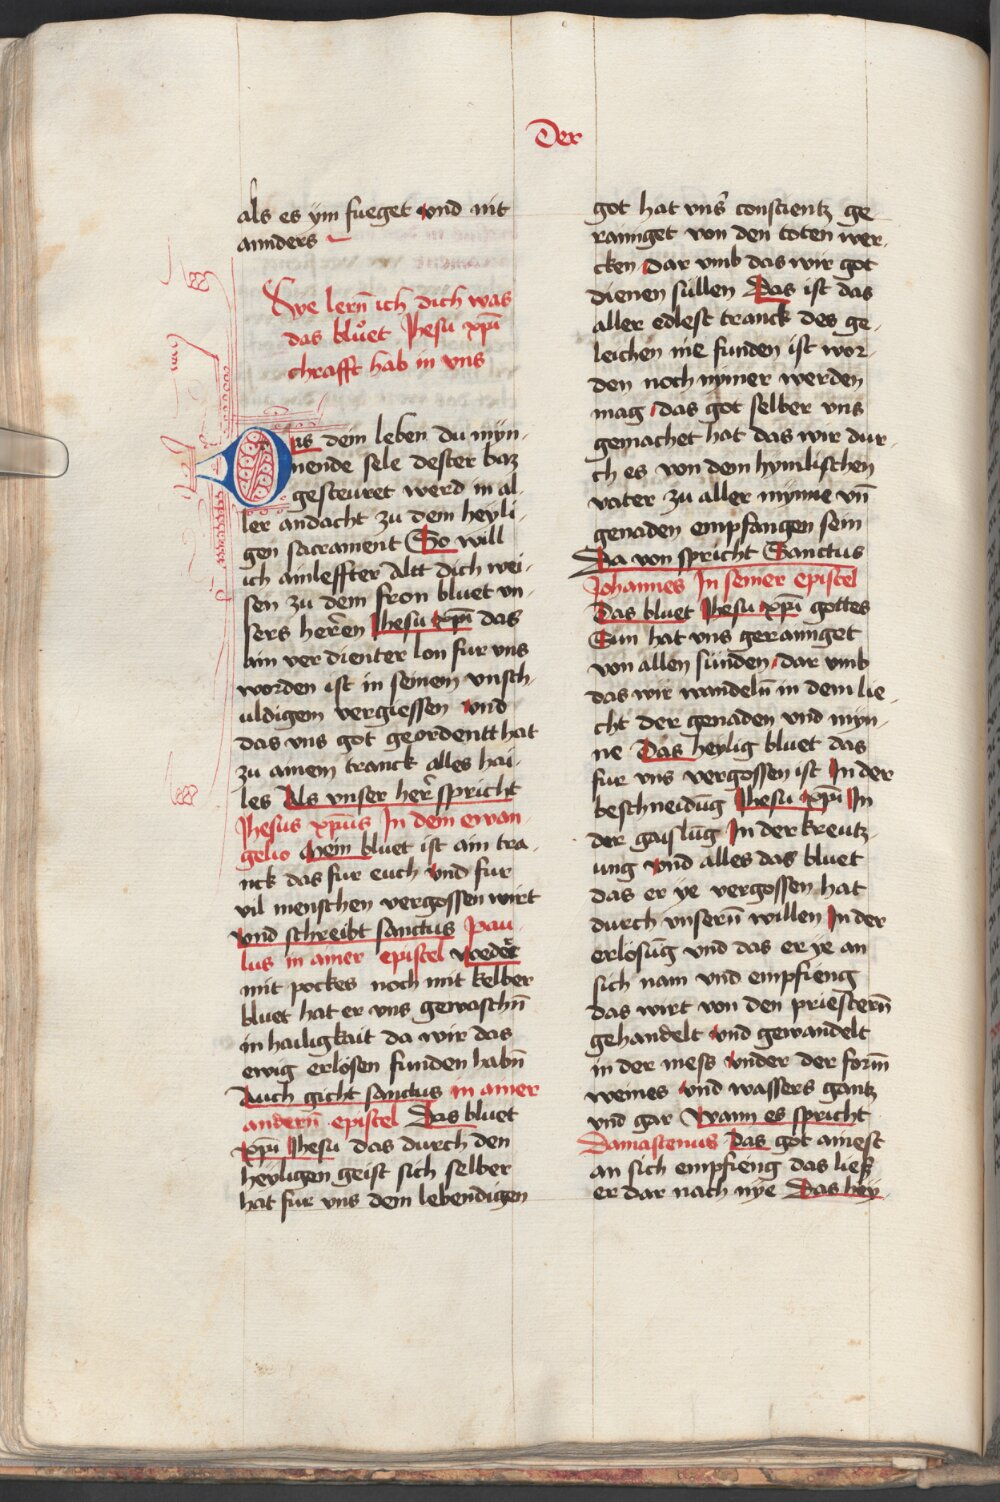 Der
als es ym fueget vnd nit
annders
Hye lern̄ ich dich was
das blůet Jhesu xp̄i
chrafft hab in vns
Das dem leben du myn-
nende sele dester baz
gesteuret werd in al-
ler andacht zu dem heyli-
gen sacrament So will
ich ainleffter Altt dich wei-
sen zu dem fron bluet vn-
sers herren Jhesu xp̄i das
ain ver dienter lon fur vns
worden ist in seinem vnsch-
uldigem vergiessen vnd
das vns got geordentt hat
zu ainem tranck alles hai-
les Als vnser her̄ spricht
Jhesus xp̄us In dem ewan
gelio Mein bluet ist ain tra-
nck das fur euch vnd fur
vil menschen vergossen wirt
Vnd schreibt sanctus Pau-
lus in ainer epistel weder
mit pockes noch mit kelber
bluet hat er vns gewaschn̄
in hailigkait da wir das
ewig erlosen funden habn̄
Auch gicht sanctus in ainer
andern̄ epistel Das bluet
xp̄i Jhesu das durch den
heyligen geist sich selber
hat fur vns dem lebendigen
got hat vns̄ conscientz ge
rainiget von den toten wer-
cken Dar vmb das wir got
dienen süllen Das ist das
aller edlest tranck des ge-
leichen nie funden ist wor-
den noch nymer werden
mag das got selber vns
gemachet hat das wir dur-
ch es von dem hymlischen
vater zu aller mynne vn̄
genaden empfangen sein
Da von spricht Sanctus
Johannes In seiner epistel
Das bluet Jhesu xp̄i gottes
Sun hat vns gerainiget
von allen sünden dar vmb
das wir wandeln̄ in dem lie
cht der genaden vnd myn-
ne Das heylig bluet das
fur vns vergossen ist In der
beschneidūg Jhesu xp̄i In
der gaislūg In der kreutz-
ung vnd alles das bluet
das er ye vergossen hat
durch vnsern̄ willen In der
erlösūg vnd das er ye an
sich nam vnd empfieng
das wirt von den priestern̄
gehandelt vnd gewandelt
in der mess vnder der form̄
weines vnd wassers gantz
vnd gar Wann es spricht
Damascenus Das got ainest
an sich empfieng das ließ
er dar nach nye Das hey-